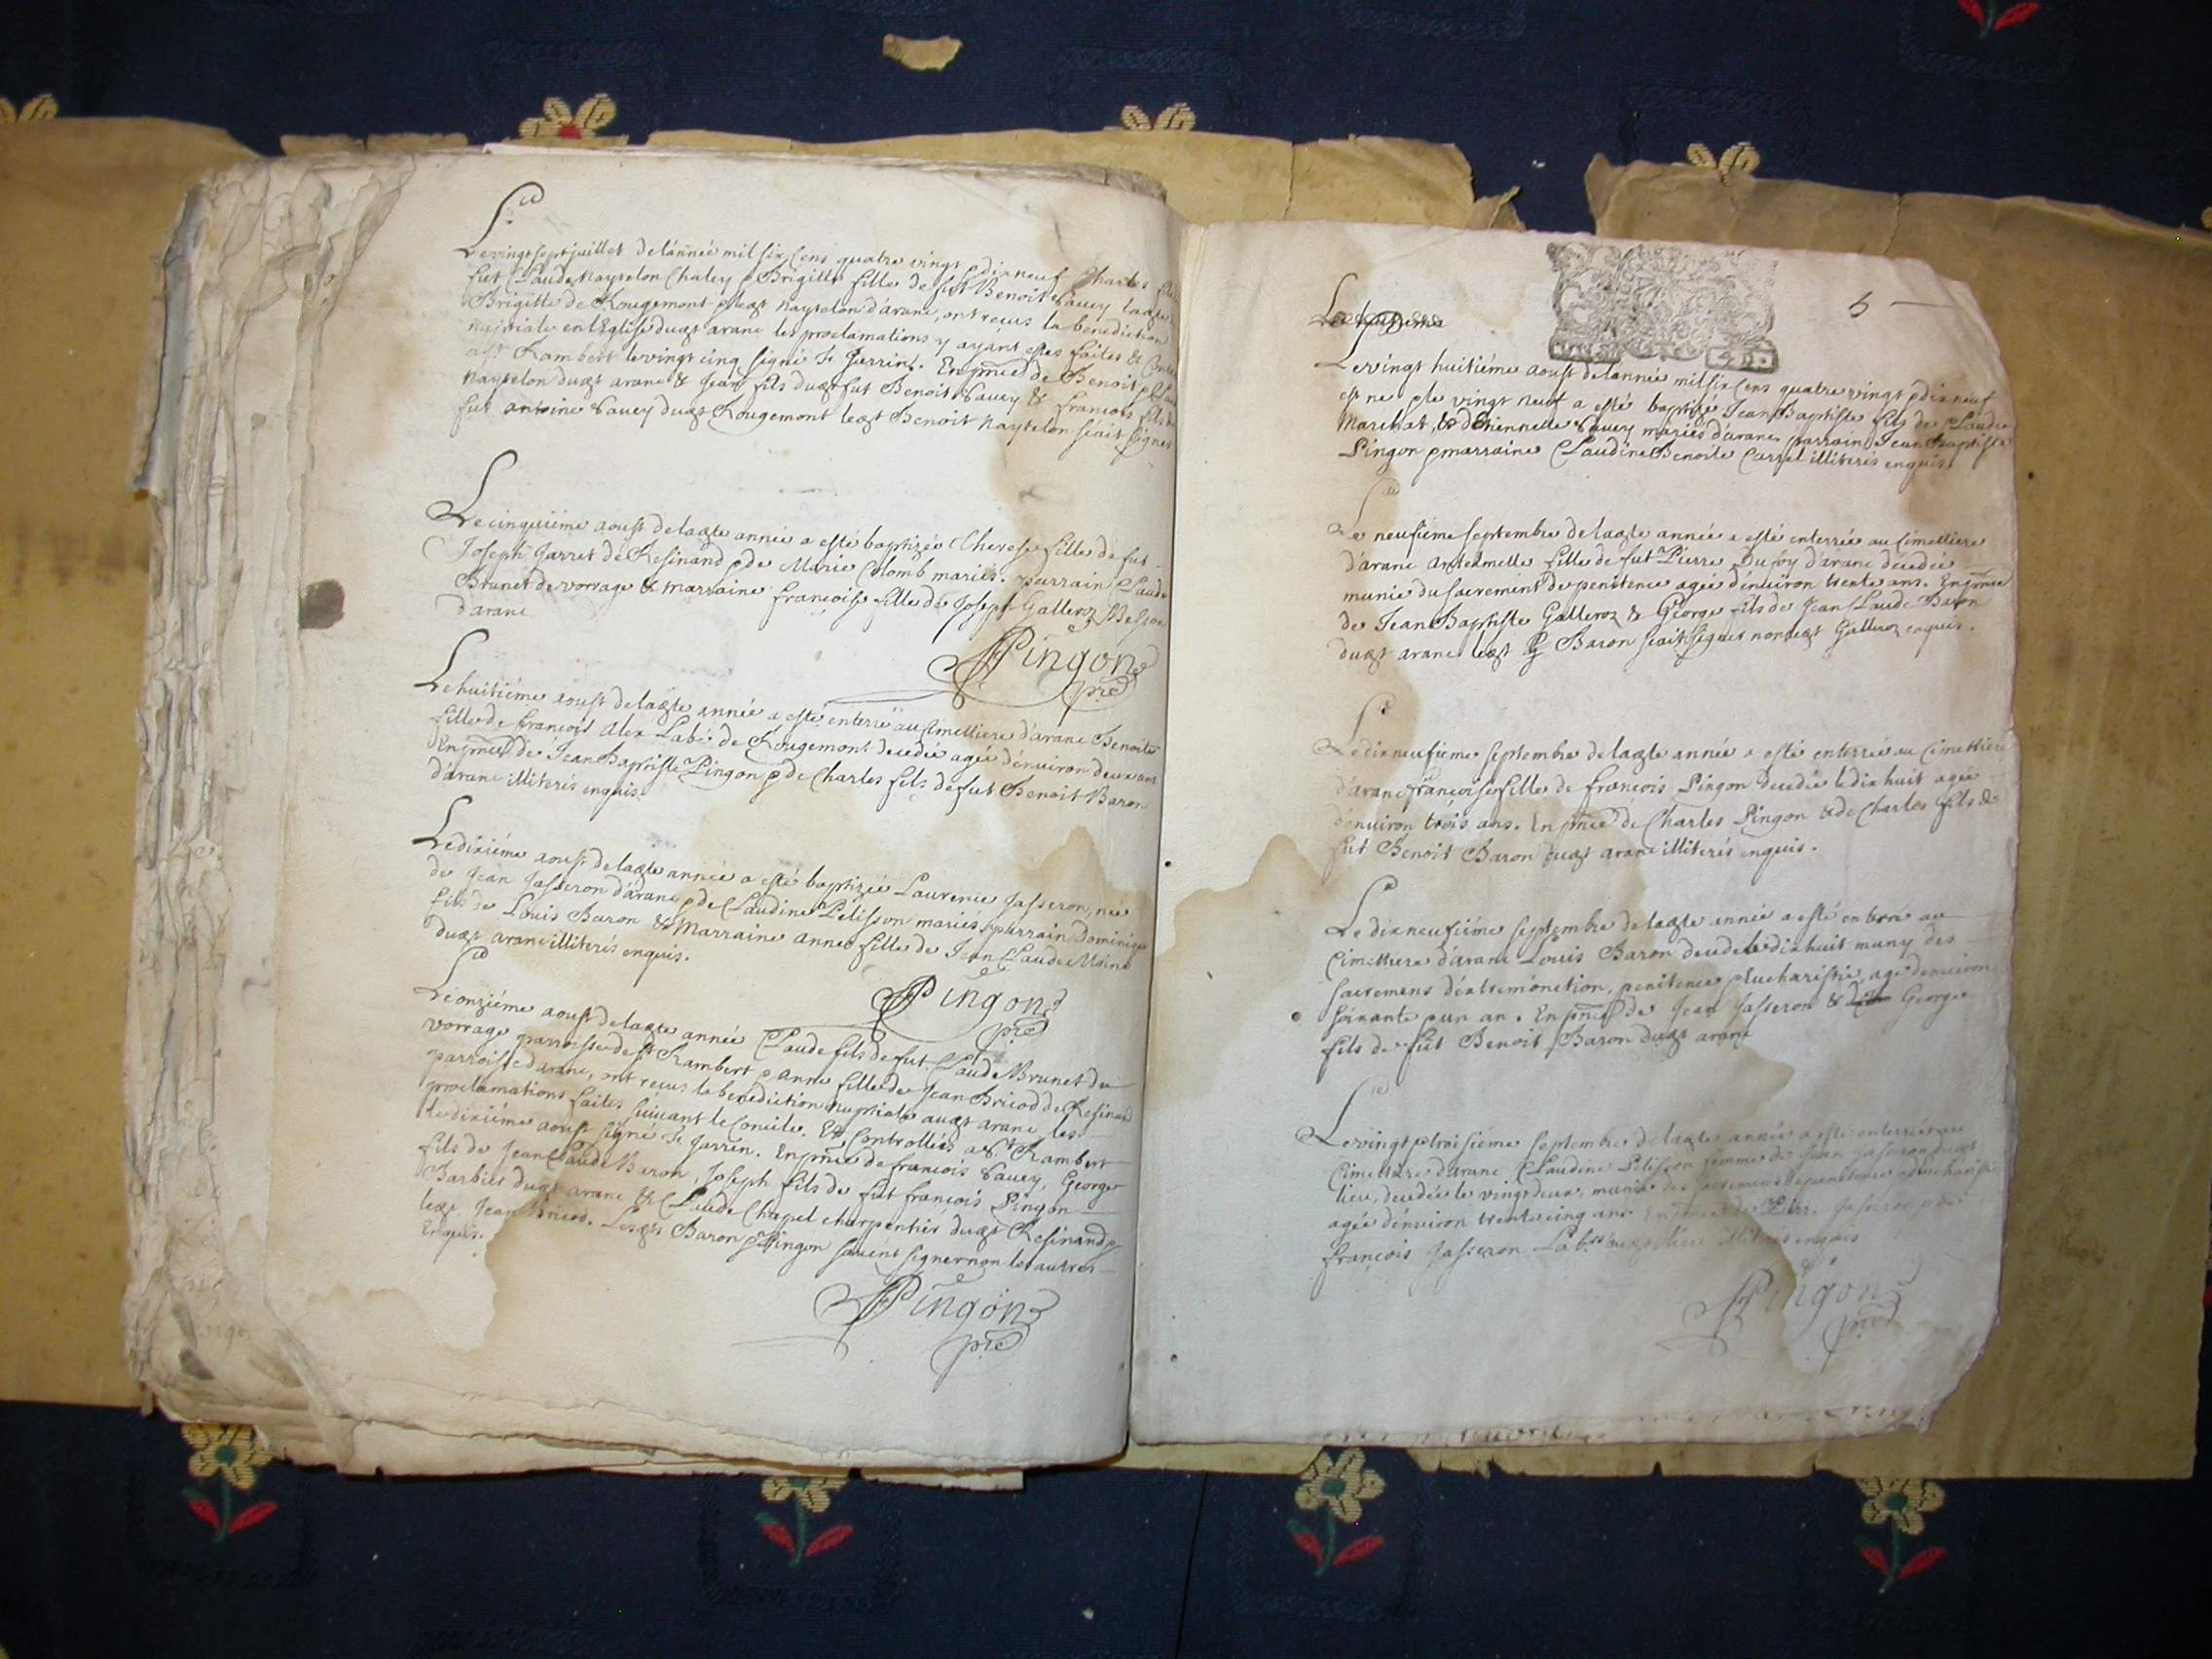 Le vingt sept juillet de l'année mil six cens quatre vingt & dixneuf Charles fils
fut Claude Nayselon Chaley & Brigitte fille de fut Benoit Savey
Brigitte de Rougemont Nayselon d'aranc, ont reçus la benediction
nuptiale en l'Eglise duqt aranc les proclamations y ayant estes faites &
a St Rambert le vingt cinq signé Jarrin. En pnce de Benoit
Nayselon duqt aranc & Jean fils duqt fut Benoit Savey & francois fils
fut antoine Savey duqt Rougemont leqt Benoit Nayselon sçait signer
Le cinquième aoust de laqte année a esté baptizée Therese fille de fut
Joseph Jarret de Resinand & de Marie Colomb mariés. parrain Claude
Brunet de vorrage & marraine françoise fille de Joseph Galleroz Besson
d'aranc
Pingon
pre
Le huitiéme aoust de laqte année a esté enterrée au Cimettiere d'aranc Benoite
fille de françois Alex Labr de Rougemont decedée agée d'enuiron deux ans
En pnce de Jean Baptiste Pingon & de Charles fils de fut Benoit Baron
d'aranc illiterés enquis.
Le diziéme aoust de laqte année a esté baptizée Laurence Jasseron, née
de Jean Jasseron d'aranc & de Claudine Pelisson mariés. parrain Dominique
fils de Louis Baron & Marraine anne fille de Jean Claude Moine
duqt aranc illiterés enquis.
Pingon
pre
Le onziéme aoust de laqte année Claude fils de fut Claude Brunet de
vorrage parroisse de St Rambert & anne fille de Jean Bricod de Resinand
parroisse d'aranc, ont reçus la benediction nuptiale auqt aranc, les
proclamations faites suiuant le Concile. Et Controllées a St Rambert
le diziéme aoust signé Jarrin. En pnce de francois Savey, George
fils de Jean Claude Baron, Joseph fils de fut françois Pingon
Barbier duqt aranc & Claude Chapel charpentier duqt Resinand &
leqt Jean Bricod. Lesqts Baron & Pingon sauent signer non les autres
Enquis.
Pingon
pre
5
Le vingt huitiéme aoust de l'année mil six cens quatre vingt & dix neuf
est né & le vingt neuf a esté baptizé Jean Baptiste fils de Claude
Marchat, & d'Etiennette Savey mariés d'aranc parrain Jean Baptiste
Pingon & marraine Claudine Benoite Carrel illiterés enquis.
Le neufième septembre de laqte année a esté enterrée au Cimettiere
d'aranc Antelmette fille de fut Pierre Dufoy d'aranc decedée
munie du sacrement de penitence agée d'enuiron trente ans. En pnce
de Jean Baptiste Galleroz & George fils de Jean Claude Baron
duqt aranc leqt Baron sçait signer non leqt Galleroz enquis.
Le dixneufieme septembre de laqte année a esté enterrée au Cimettiere
d'aranc françoise fille de françois Pingon decedée le dixhuit agée
d'enuiron trois ans. En pnce de Charles Pingon & de Charles fils de
fut Benoit Baron duqt aranc illiterés enquis.
Le dixneufiéme septembre de laqte année a esté enterré au
Cimettiere d'aranc Louis Baron decedé le dixhuit muny des
sacremens d'extremónction, penitence & Eucharistie, agé d'enuiron
soixante & un an. En pnce de Jean Jasseron & George
fils de fut Benoit Baron duqt aranc
Le vingt & troisiéme septembre de laqte année a esté enterrée au
Cimettiere d'aranc Claudine Pelisson femme de Jean Jasseron dudt
lieu, decedée le vingt deux, munie des sacremens de penitence & Eucharistie
agée d'enuiron trente cinq ans En pnce de Pierre Jasseron & de
françois Jasseron Labrs illiterés enquis
Pingon
pre